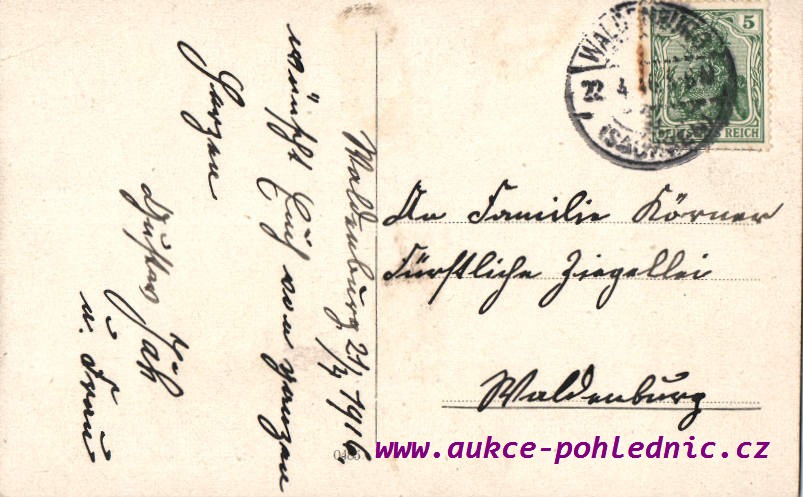 Waldenburg 21/4 1916.
wünscht Euch von ganzen
Herzen
Gustav
u. Frau
An Familie Körner
Fürstliche Ziegellei
Waldenburg
5
DEUTSCHES REICH
WALDENBURG
(SACHSEN)
22 4
www.aukce-pohlednic.cz